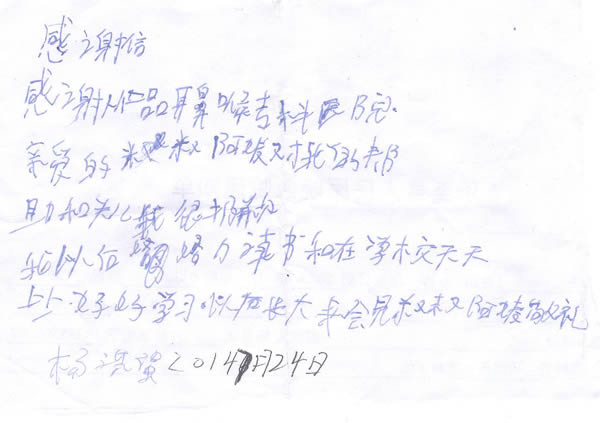 感谢信
感谢仁品耳鼻喉专科医院.
亲爱的叔叔阿姨对我的帮
助和关心我很感
我以后努力读书和在学校天天
上上好好学习以后长大来会见叔叔阿姨敬礼
杨 2014 7月24日